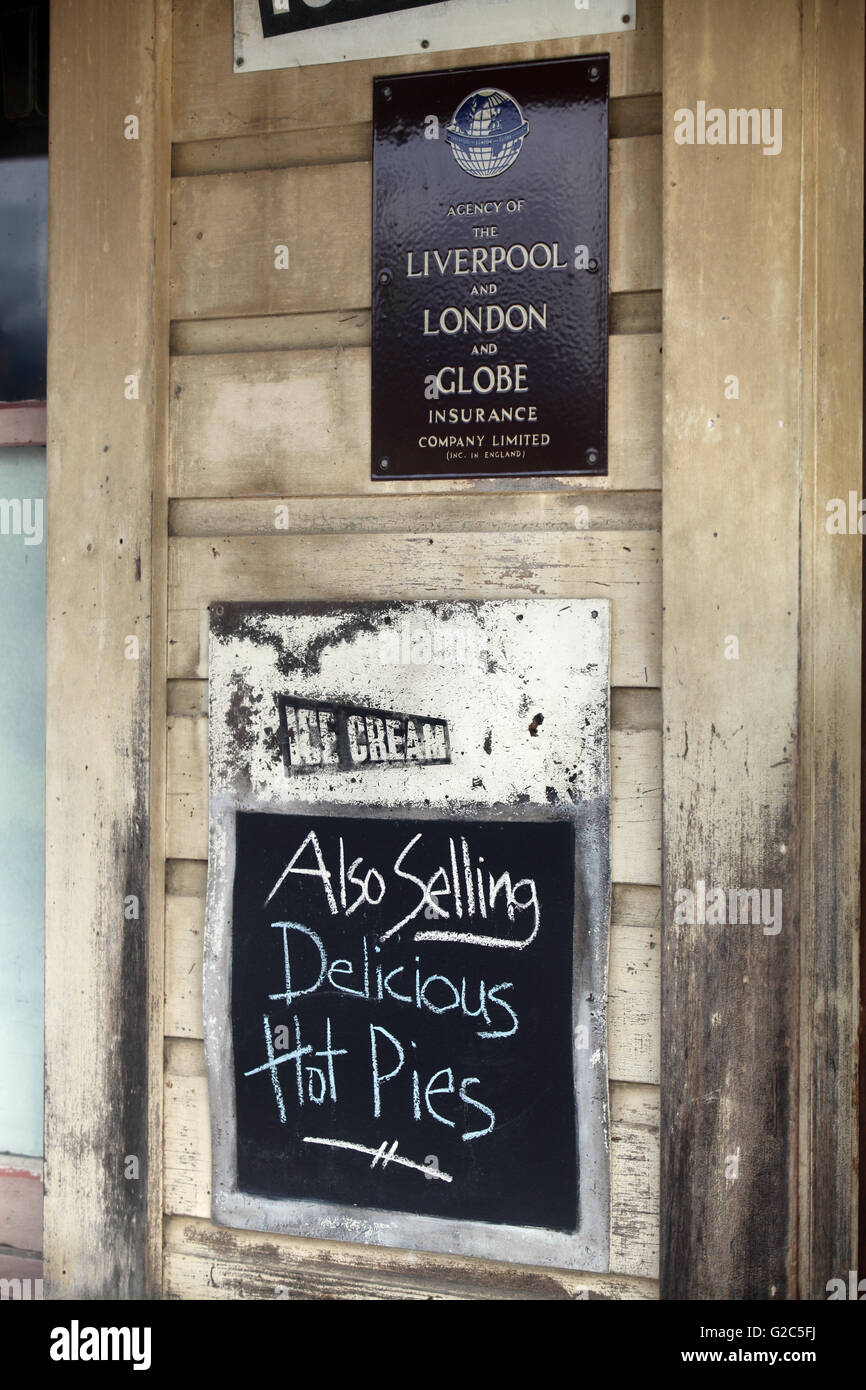 AGENCY OF
THE
LIVERPOOL
AND
LONDON
AND
GLOBE
INSURANCE
COMPANY LIMITED
(INC. IN ENGLAND)
ICE CREAM
Also Selling
Delicious
Hot Pies
alamy
Image ID: G2C5FJ
www.alamy.com